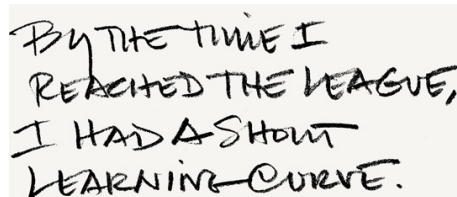 By THE TIME I
REACHED THE LEAGUE,
I HAD A SHORT
LEARNING CURVE.